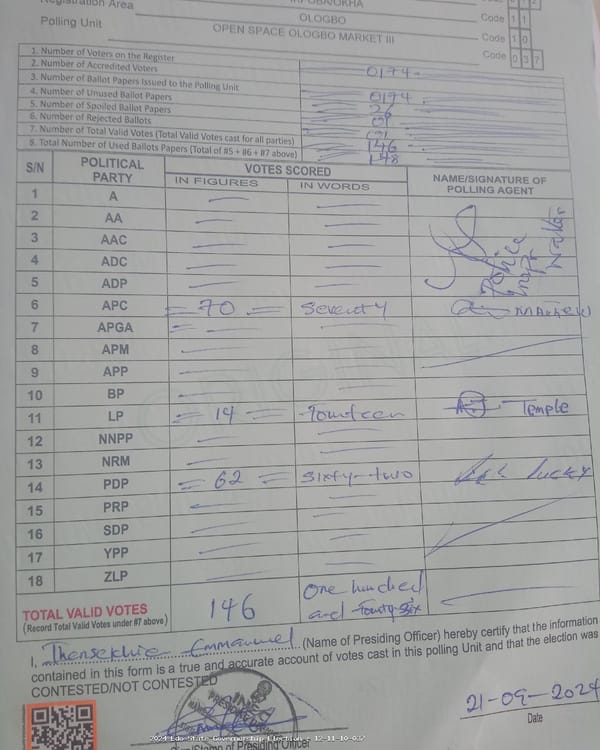 Registration Area
OLOGBO
Code 1 1
Polling Unit
OPEN SPACE OLOGBO MARKET III
Code 1 0
Code 0 3 7
1. Number of Voters on the Register
2. Number of Accredited Voters 0174
3. Number of Ballot Papers Issued to the Polling Unit
4. Number of Unused Ballot Papers 0174
5. Number of Spoiled Ballot Papers 26
6. Number of Rejected Ballots 01
7. Number of Total Valid Votes (Total Valid Votes cast for all parties) 146
8. Total Number of Used Ballots Papers (Total of #5 + #6 + #7 above) 148
S/N POLITICAL PARTY VOTES SCORED NAME/SIGNATURE OF POLLING AGENT
IN FIGURES IN WORDS
1 A
2 AA
3 AAC
4 ADC
5 ADP
Police
6 APC = 70 = Seventy
7 APGA
8 APM
9 APP
10 BP
11 LP = 14 = Fourteen Temple
12 NNPP
13 NRM
14 PDP = 62 = Sixty-two Lucky
15 PRP
16 SDP
17 YPP
18 ZLP
TOTAL VALID VOTES 146 One hundred and Fourty Six
(Record Total Valid Votes under #7 above)
I, Emmanuel (Name of Presiding Officer) hereby certify that the information
contained in this form is a true and accurate account of votes cast in this polling Unit and that the election was
CONTESTED/NOT CONTESTED
21-09-2024
Date
/Stamp of Presiding Officer
2024 Edo State Governorship Election - 12-11-10-037